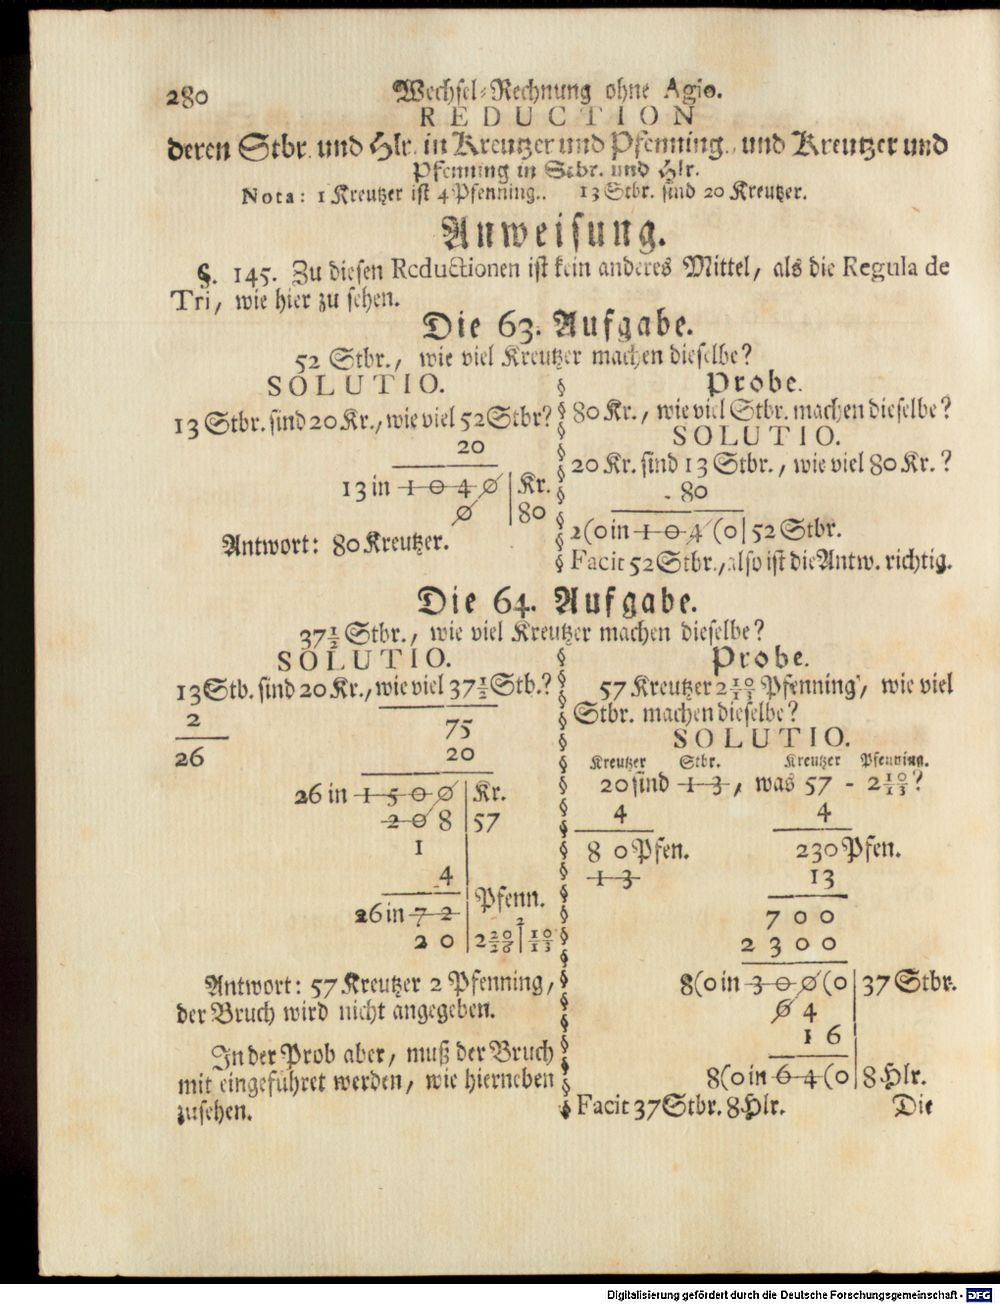 280 Wechsel-Rechnung ohne Agio.
REDUCTION
deren Stbr. und Hlr. in Kreutzer und Pfenning., und Kreutzer und
Pfenning in Stbr. und Hlr.
Nota: 1 Kreutzer ist 4 Pfenning.. 13 Stbr. sind 20 Kreutzer.
Anweisung.
§. 145. Zu diesen Reductionen ist kein anderes Mittel, als die Regula de
Tri, wie hier zu sehen.
Die 63. Aufgabe.
52 Stbr., wie viel Kreutzer machen dieselbe?
SOLUTIO.
13 Stbr. sind 20 Kr., wie viel 52 Stbr?
20
13 in 1 0 4 0 | Kr.
0 | 80
Antwort: 80 Kreutzer.
Probe.
80 Kr., wie viel Stbr. machen dieselbe?
SOLUTIO.
20 Kr. sind 13 Stbr., wie viel 80 Kr.?
80
2(0 in 1 0 4 (0 | 52 Stbr.
Facit 52 Stbr., also ist die Antw. richtig.
Die 64. Aufgabe.
37 1/2 Stbr., wie viel Kreutzer machen dieselbe?
SOLUTIO.
13 Stb. sind 20 Kr., wie viel 37 1/2 Stb.?
2 75
26 20
26 in 1 5 0 0 | Kr.
2 0 8 | 57
1
4
26 in 7 2 | Pfenn.
2
2 0 | 2 20/26 | 10/13
Antwort: 57 Kreutzer 2 Pfenning,
der Bruch wird nicht angegeben.
In der Prob aber, muß der Bruch
mit eingeführet werden, wie hierneben
zusehen.
Probe.
57 Kreutzer 2 10/13 Pfenning, wie viel
Stbr. machen dieselbe?
SOLUTIO.
Kreutzer Stbr. Kreutzer Pfenning.
20 sind 1 3, was 57 - 2 10/13?
4 4
8 0 Pfen. 230 Pfen.
1 3 13
7 0 0
2 3 0 0
8(0 in 3 0 0 (0 | 37 Stbr.
6 4
1 6
8(0 in 6 4 (0 | 8 Hlr.
Facit 37 Stbr. 8 Hlr.
Die
Digitalisierung gefördert durch die Deutsche Forschungsgemeinschaft - DFG